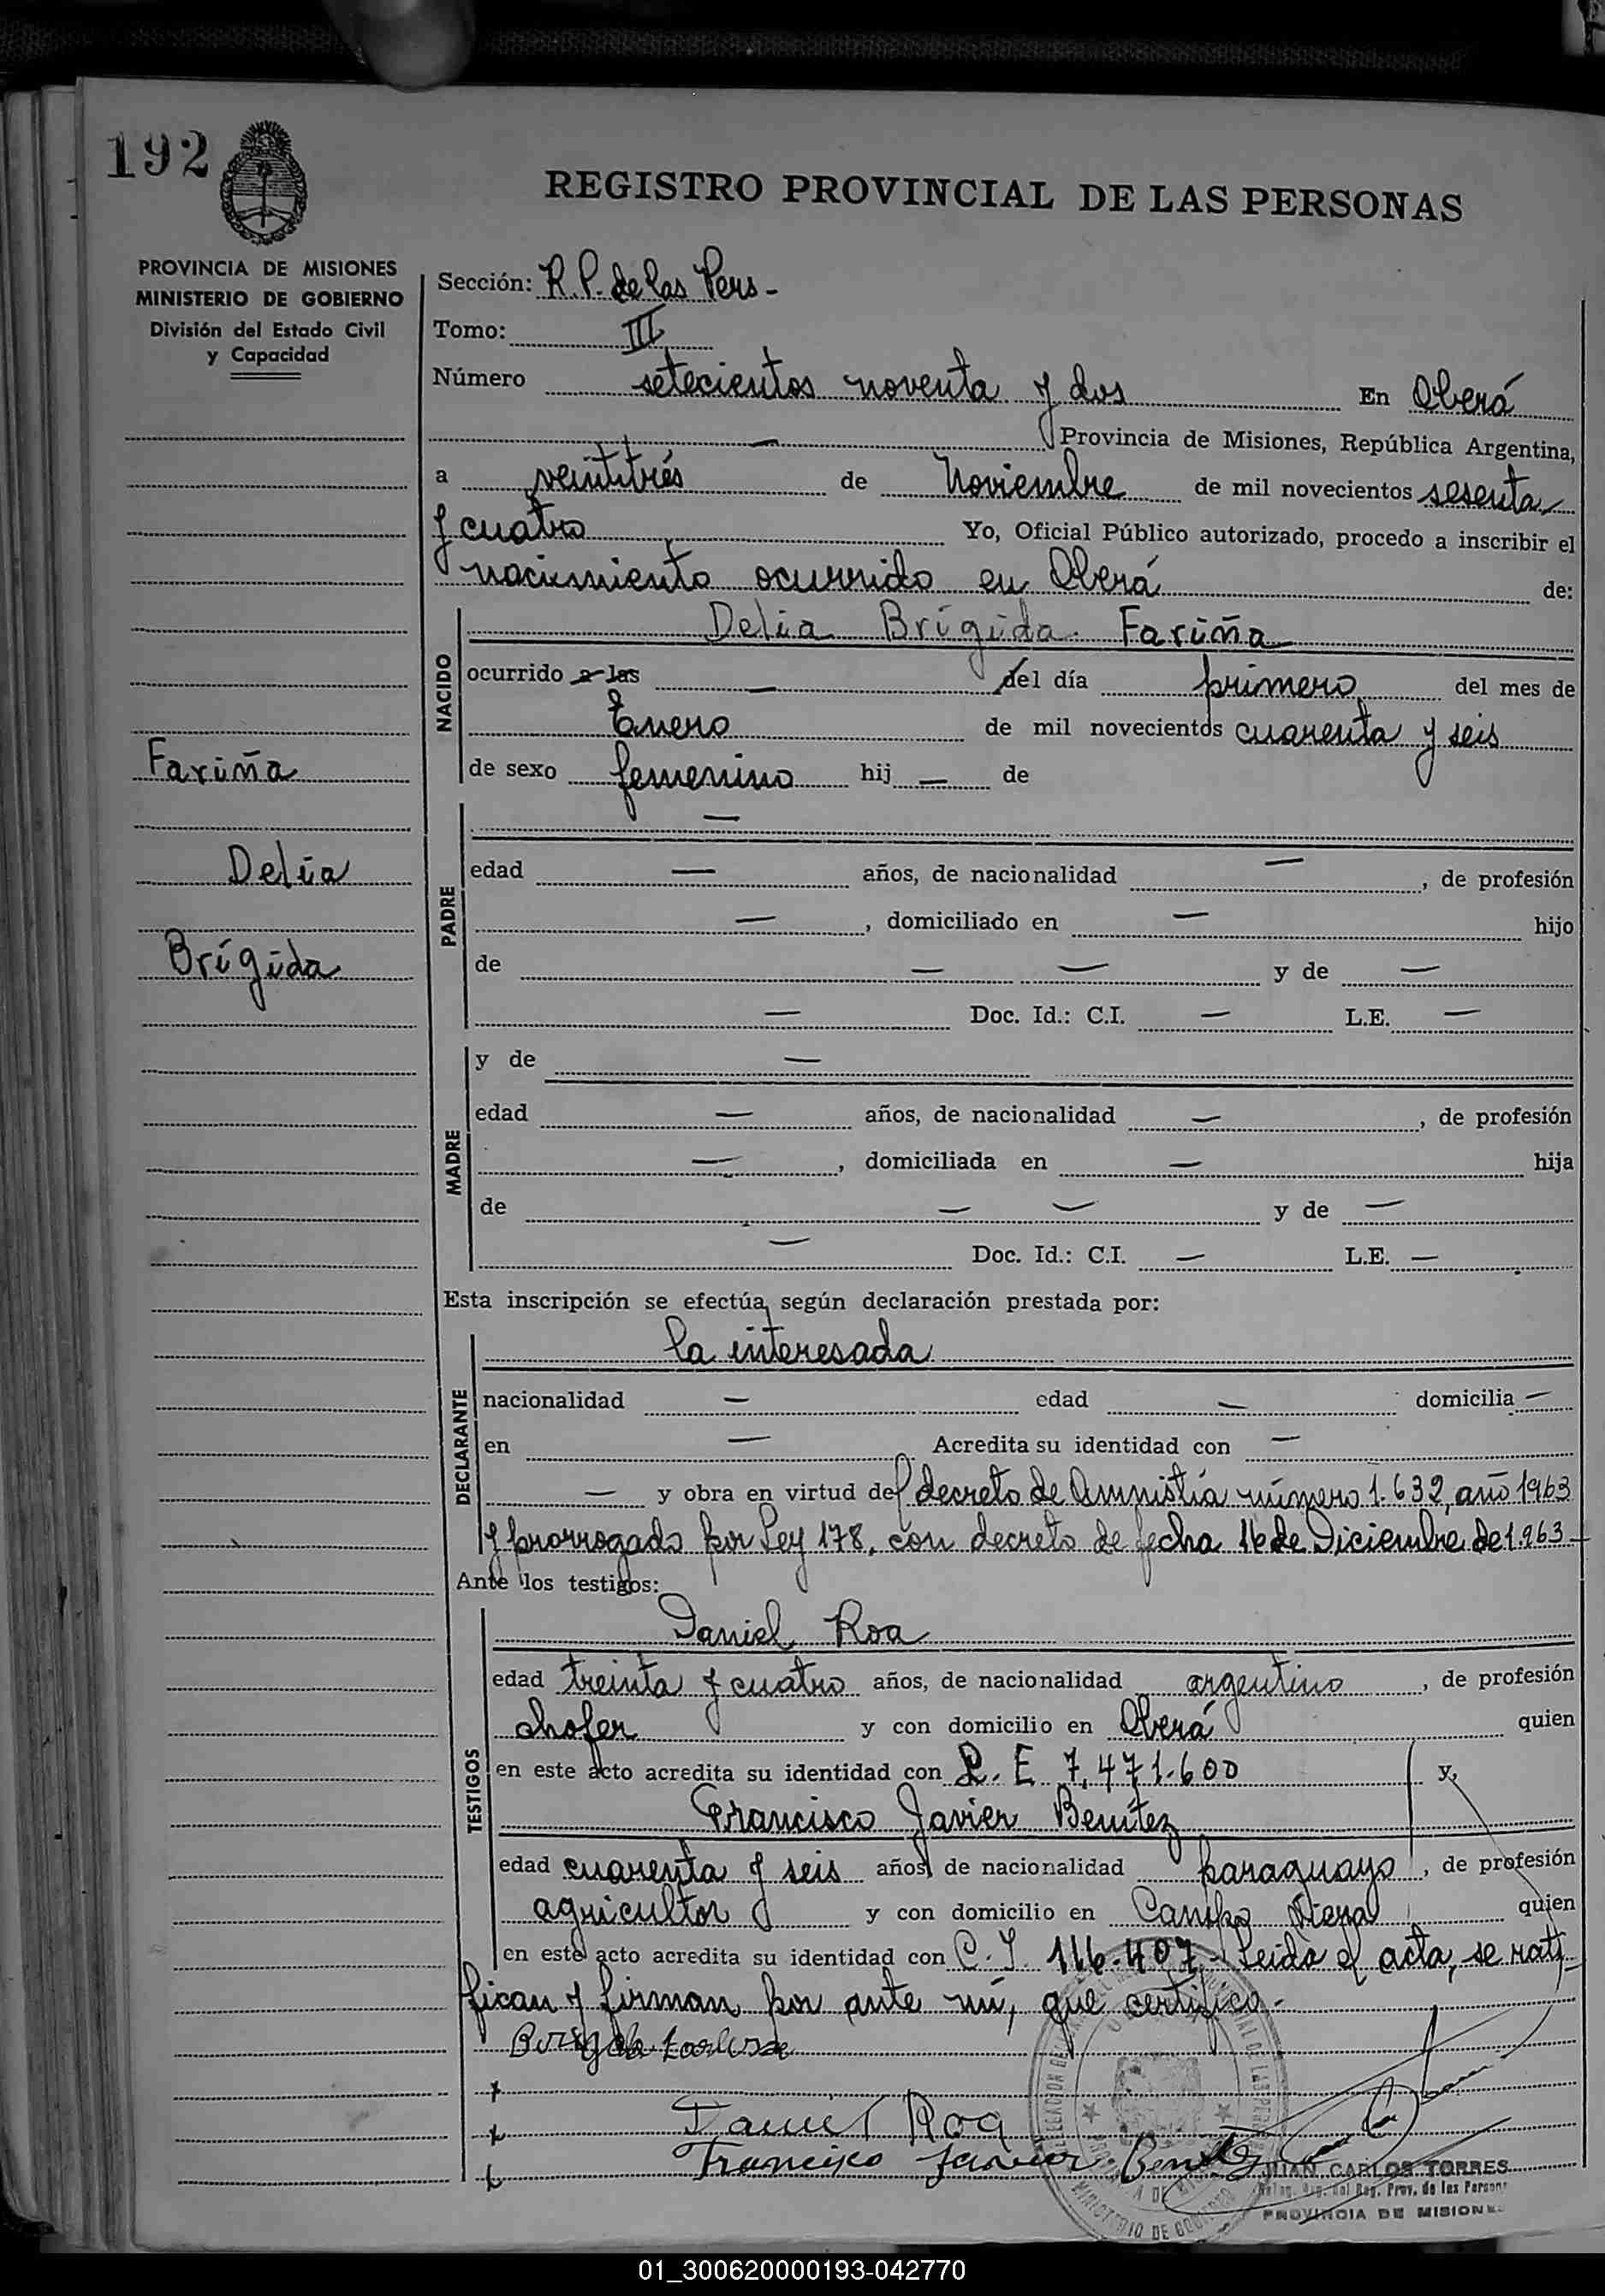 192
REGISTRO PROVINCIAL DE LAS PERSONAS
PROVINCIA DE MISIONES
MINISTERIO DE GOBIERNO
División del Estado Civil
y Capacidad
Fariña
Delia
Brígida
Sección: R.P. de las Pers-
Tomo: III
Número setecientos noventa y dos En Oberá
— Provincia de Misiones, República Argentina,
a veintitrés de Noviembre de mil novecientos sesenta
y cuatro Yo, Oficial Público autorizado, procedo a inscribir el
nacimiento ocurrido en Oberá de:
NACIDO
Delia Brígida Fariña
ocurrido a las — del día primero del mes de
Enero de mil novecientos cuarenta y seis
de sexo femenino hij — de
PADRE
—
edad — años, de nacionalidad —, de profesión
—, domiciliado en — hijo
de — — y de —
— Doc. Id.: C.I. — L.E. —
MADRE
y de —
edad — años, de nacionalidad —, de profesión
—, domiciliada en — hija
de — — y de —
— Doc. Id.: C.I. — L.E. —
Esta inscripción se efectúa según declaración prestada por:
DECLARANTE
la interesada
nacionalidad — edad — domicilia —
en — Acredita su identidad con —
— y obra en virtud del decreto de Amnistía número 1.632, año 1963
y prorrogado por Ley 178, con decreto de fecha 16 de Diciembre de 1.963-
Ante los testigos:
TESTIGOS
Daniel Roa
edad treinta y cuatro años, de nacionalidad argentino, de profesión
chofer y con domicilio en Oberá quien
en este acto acredita su identidad con L.E 7.471.600 y,
Francisco Javier Benítez
edad cuarenta y seis años, de nacionalidad paraguayo, de profesión
agricultor y con domicilio en Campo Viera quien
en este acto acredita su identidad con C.I. 116.407,- Leida el acta, se rati-
fican y firman por ante mí, que certifico.-
Daniel Roa
Francisco Javier Benitez
JUAN CARLOS TORRES
Reg. Prov. de las Person
PROVINCIA DE MISIONES
01_300620000193-042770